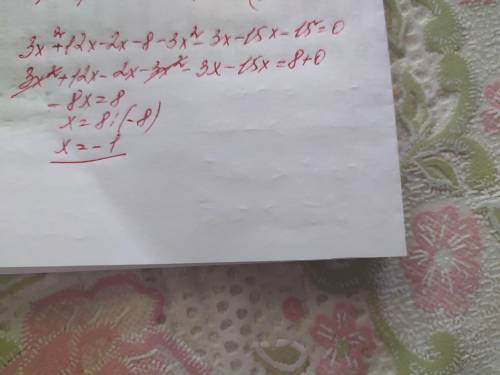 3x²+12x-2x-8-3x²-3x-15x-15=0
3x²+12x-2x-3x²-3x-15x=8+0
-8x=8
x=8:(-8)
x=-1